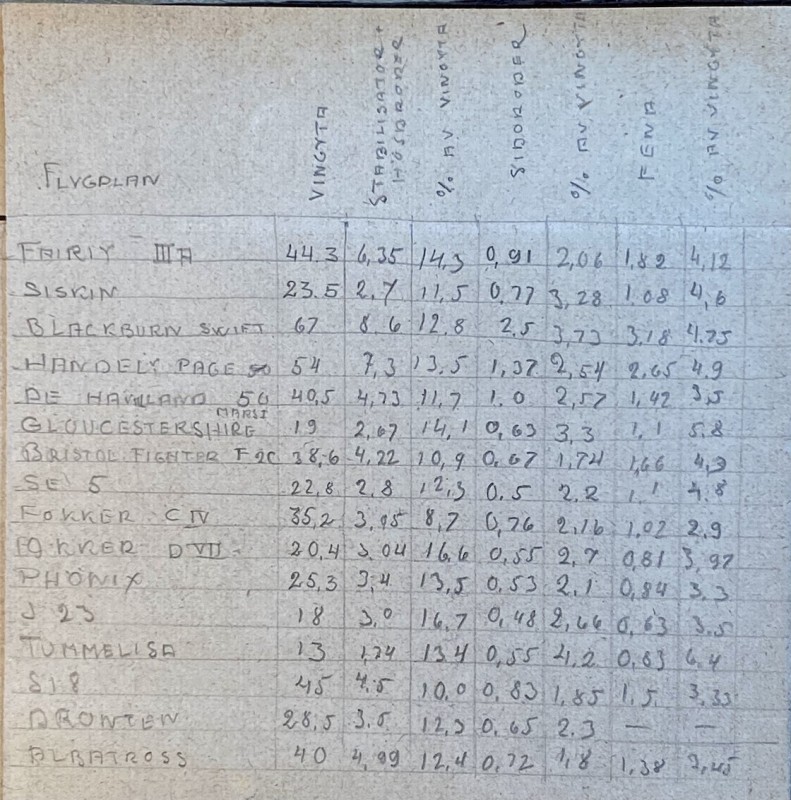 FLYGPLAN VINGYTA STABILISATOR + HÖJDRODER % AV VINGYTA SIDORODER % AV VINGYTA FENA % AV VINGYTA
FAIRIY IIIA 44.3 6,35 14,3 0,91 2,06 1,82 4,12
SISKIN 23.5 2,7 11,5 0,77 3,28 1.08 4,6
BLACKBURN SWIFT 67 8,6 12.8 2.5 3,73 3,18 4.75
HANDELY PAGE 54 7,3 13,5 1,37 2,54 2,65 4.9
DE HAVILAND 50 40,5 4,73 11,7 1.0 2,57 1,42 3,5
MARSI
GLOUCESTERSHIRE 19 2,67 14,1 0,63 3,3 1,1 5,8
BRISTOL FIGHTER F2C 38,6 4,22 10,9 0,67 1,74 1,66 4,3
SE 5 22,8 2,8 12,3 0.5 2.2 1,1 4.8
FOKKER C IV 35,2 3,05 8,7 0,76 2,16 1,02 2,9
FOKKER D VII - 20,4 3,04 16,6 0,55 2,7 0,81 3,97
PHÖNIX 25,3 3,4 13,5 0,53 2,1 0,84 3,3
J 23 18 3,0 16,7 0,48 2,66 0,63 3.5
TUMMELISA 13 1,74 13,4 0,55 4,2 0,83 6,4
S18 45 4.5 10,0 0,83 1,85 1,5 3,33
DRONTEN 28,5 3.5 12,3 0,65 2.3 — —
ALBATROSS 40 4,99 12,4 0,72 1,8 1,38 3,45